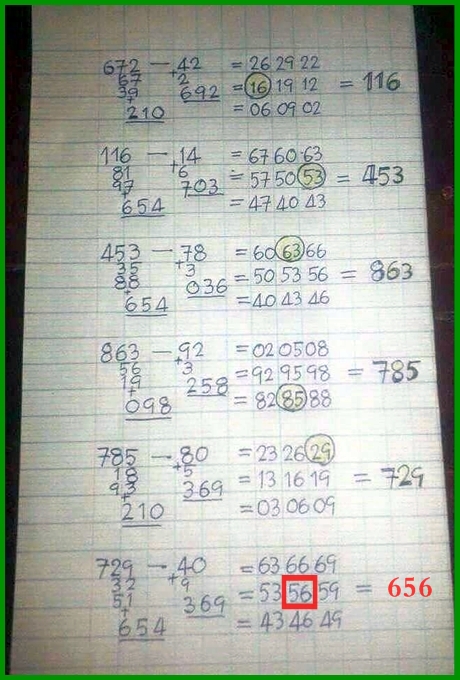 672 — 42 = 26 29 22
67 + 2 = 16 19 12 = 116
39 692
+
210 = 06 09 02
116 — 14 = 67 60 63
81 + 6 = 57 50 53 = 453
97 703
+
654 = 47 40 43
453 — 78 = 60 63 66
35 + 3 = 50 53 56 = 863
88 036
+
654 = 40 43 46
863 — 92 = 02 05 08
56 + 3 = 92 95 98 = 785
19 258
+
098 = 82 85 88
785 — 80 = 23 26 29
18 + 5 = 13 16 19 = 729
93 369
+
210 = 03 06 09
729 — 40 = 63 66 69
32 + 9 = 53 56 59 = 656
51 369
+
654 = 43 46 49